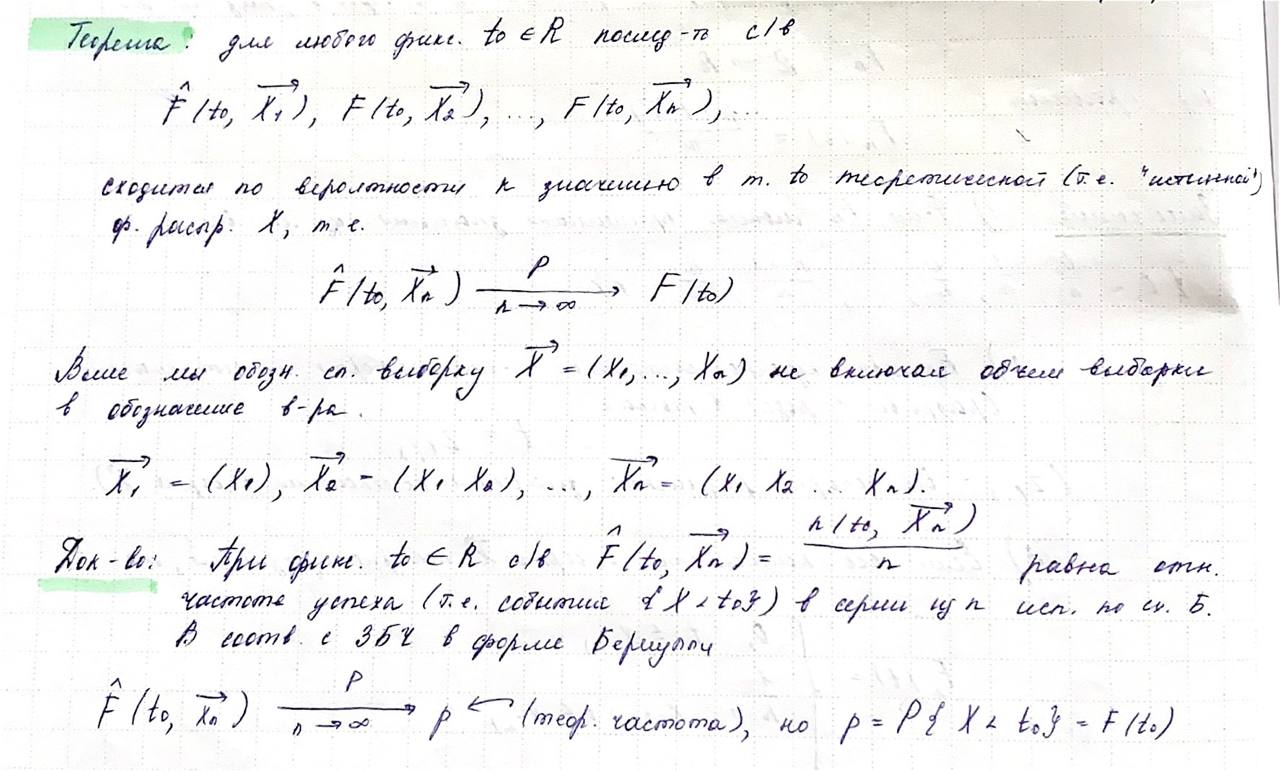 Теорема: для любого фикс. t₀ ∈ R послед-ть с/в
F̂(t₀, X⃗₁), F(t₀, X⃗₂), ..., F(t₀, X⃗n), ...
сходится по вероятности к значению в т. t₀ теоретической (т.е. "истинной")
ф. распр. X, т.е.
F̂(t₀, X⃗n) —P, n→∞→ F(t₀)
Выше мы обозн. сл. выборку X⃗ = (X₁, ..., Xn) не включая объем выборки
в обозначение в-ра.
X⃗₁ = (X₁), X⃗₂ = (X₁ X₂), ..., X⃗n = (X₁ X₂ .. Xn).
Док-во: При фикс. t₀ ∈ R с/в F̂(t₀, X⃗n) = n(t₀, X⃗n)/n равна отн.
частоте успеха (т.е. события {X < t₀}) в серии из n исп. по сх. Б.
В соотв. с ЗБЧ в форме Бернулли
F̂(t₀, X⃗n) —P, n→∞→ p ← (теор. частота), но p = P{X < t₀} = F(t₀)